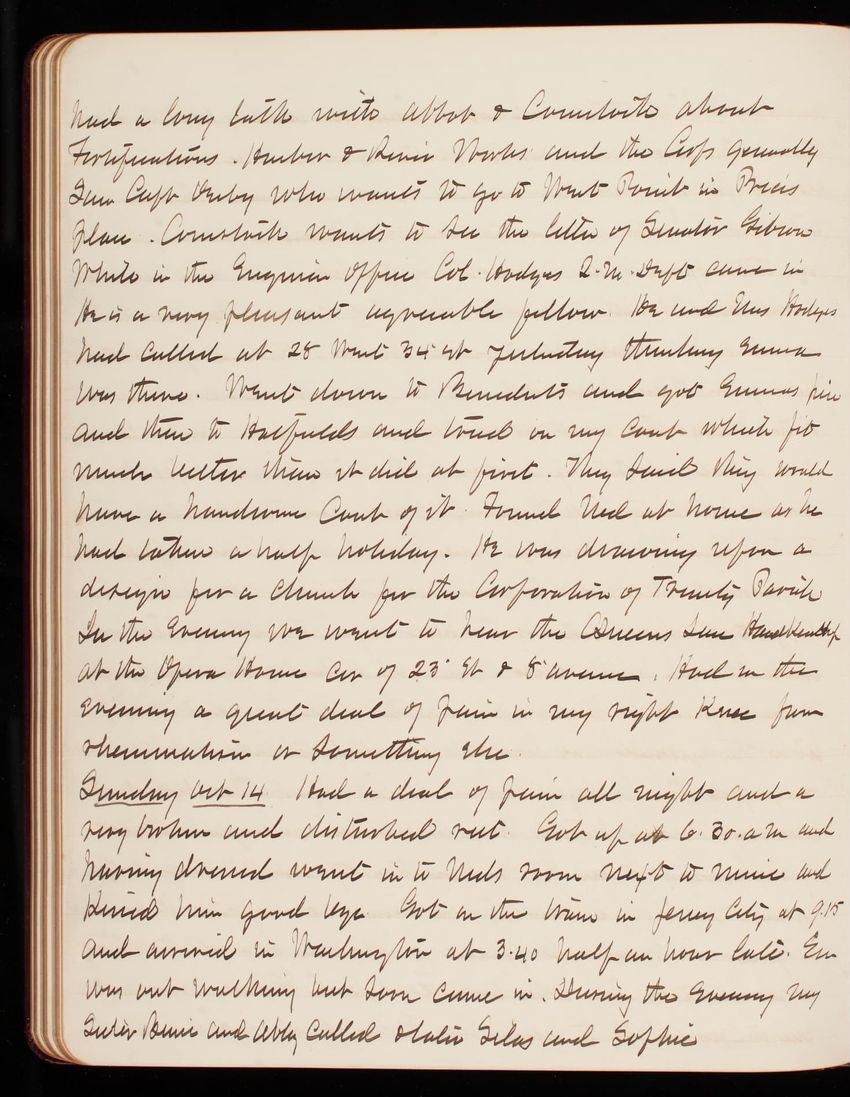 had a long talk with Abbot & Comstock about
Fortifications. Harbor & River Works and the Corps generally
Saw Capt Derby who wants to go to West Point in Price's
place. Comstock wants to see the letter of Senator Gibson
While in the Engineer Office Col. Hodges Q.M. Dept came in
He is a very pleasant agreeable fellow. He and Mrs Hodges
had called at 28 West 34 St yesterday thinking Emma
was there. Went down to Benedicts and got Emmas pin
and then to Hatfields and tried on my coat which fit
much better than it did at first. They said they would
have a handsome Coat of it. Found Ned at home as he
had taken a half holiday. He was drawing upon a
design for a church for the Corporation of Trinity Parish
In the Evening we went to hear the Queens Lace Handkerchief
at the Opera House Cor of 23 St & 8 avenue. Had in the
evening a great deal of pain in my right Knee from
rheumatism or something else.
Sunday Oct 14 Had a deal of pain all night and a
very broken and disturbed rest. Got up at 6.30 a m and
having dressed went in to Neds room next to mine and
Kissed him good bye. Got on the train in Jersey City at 9.15
and arrived in Washington at 3.40 half an hour late. Em
was out walking but soon came in. During the evening my
Sister and Abby called & later Silas and Sophie